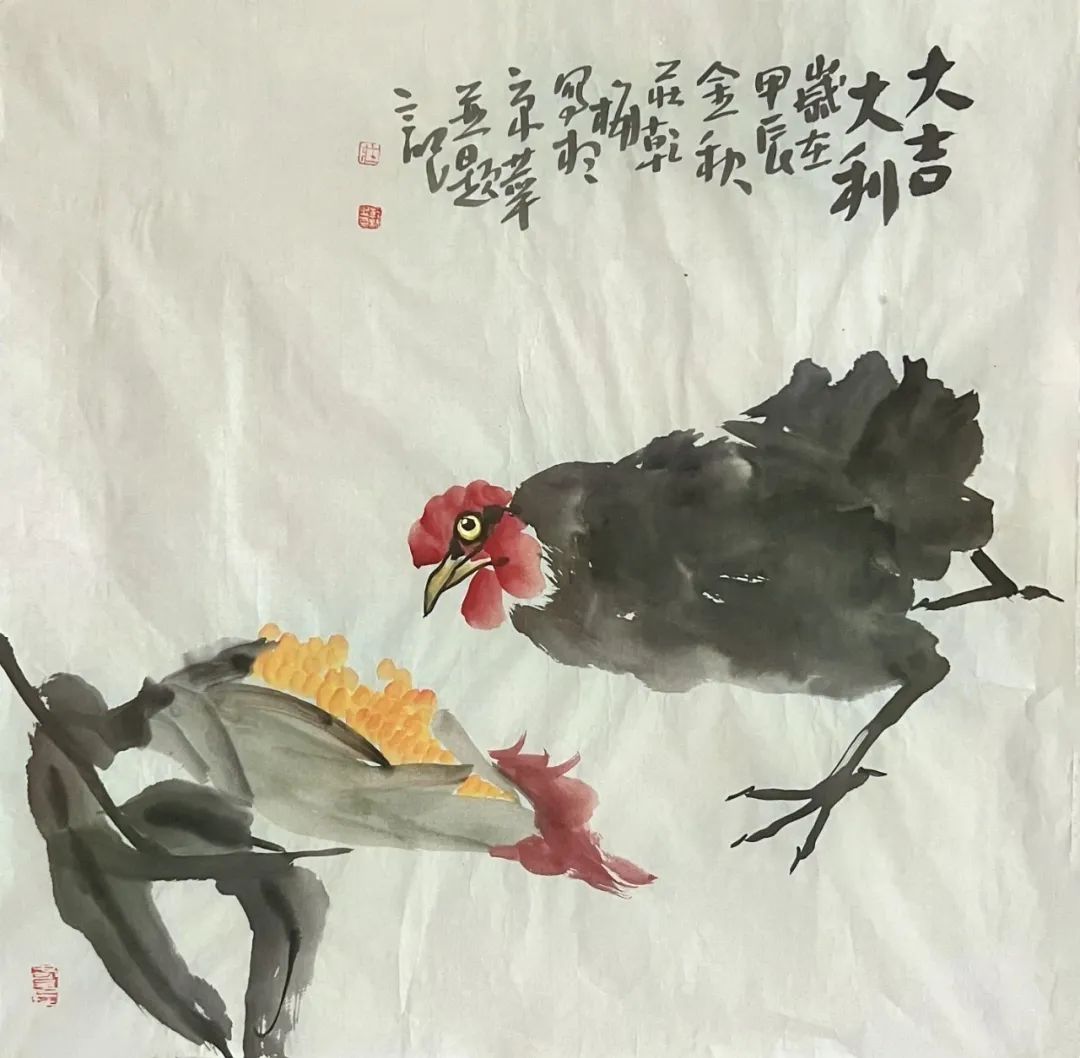 大吉
大利
歲在
甲辰
金秋
莊乾
梅
寫於
京華
並題
記